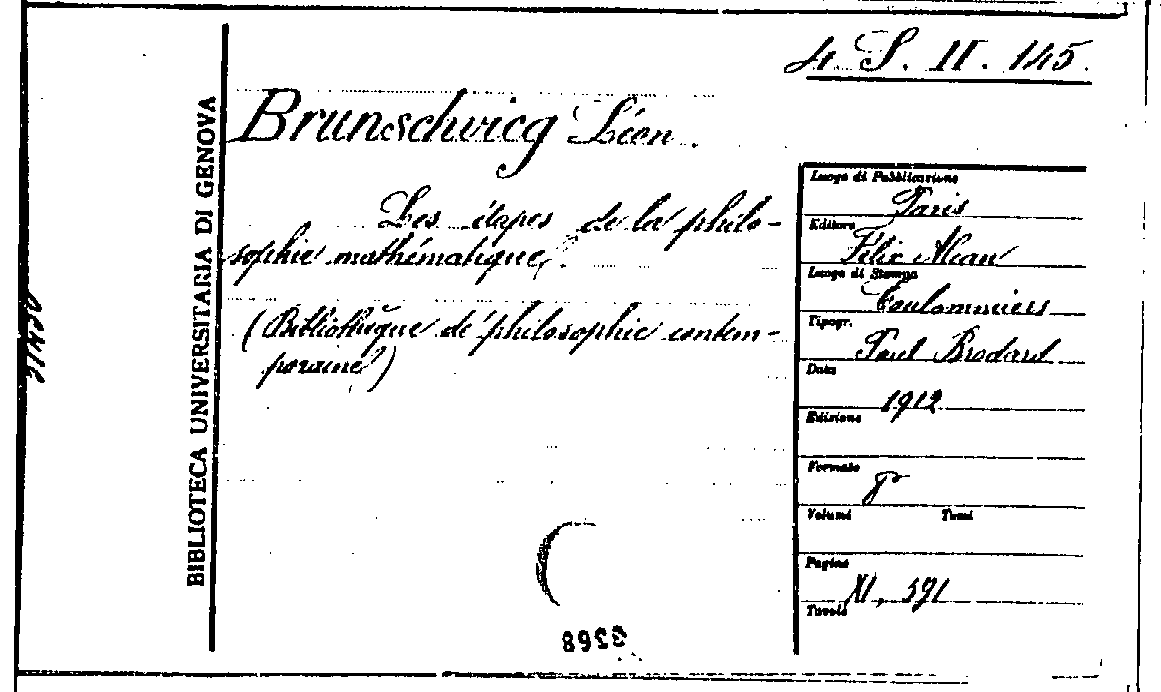 4 S. II. 145.
BIBLIOTECA UNIVERSITARIA DI GENOVA
Brunschvicg Léon.
Les étapes de la philo-
sophie mathématique.
(Bibliothèque de philosophie contem-
poraine)
Luogo di Pubblicazione
Paris
Editore
Félix Alcan
Luogo di Stampa
Coulommiers
Tipogr.
Paul Brodard
Data
1912
Edizione
Formato
8°
Volumi Tomi
Pagine
XI, 591
Tavole